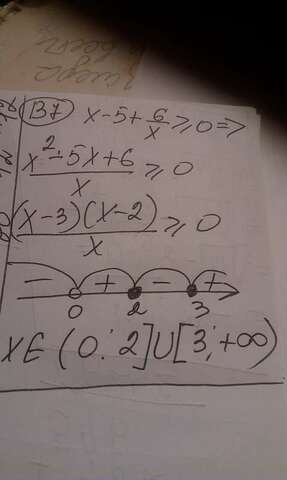 В7 x-5+6/x≥0=>
x²-5x+6/x ≥0
(x-3)(x-2)/x ≥0
- + - +
0 2 3
XЄ(0;2]U[3;+∞)